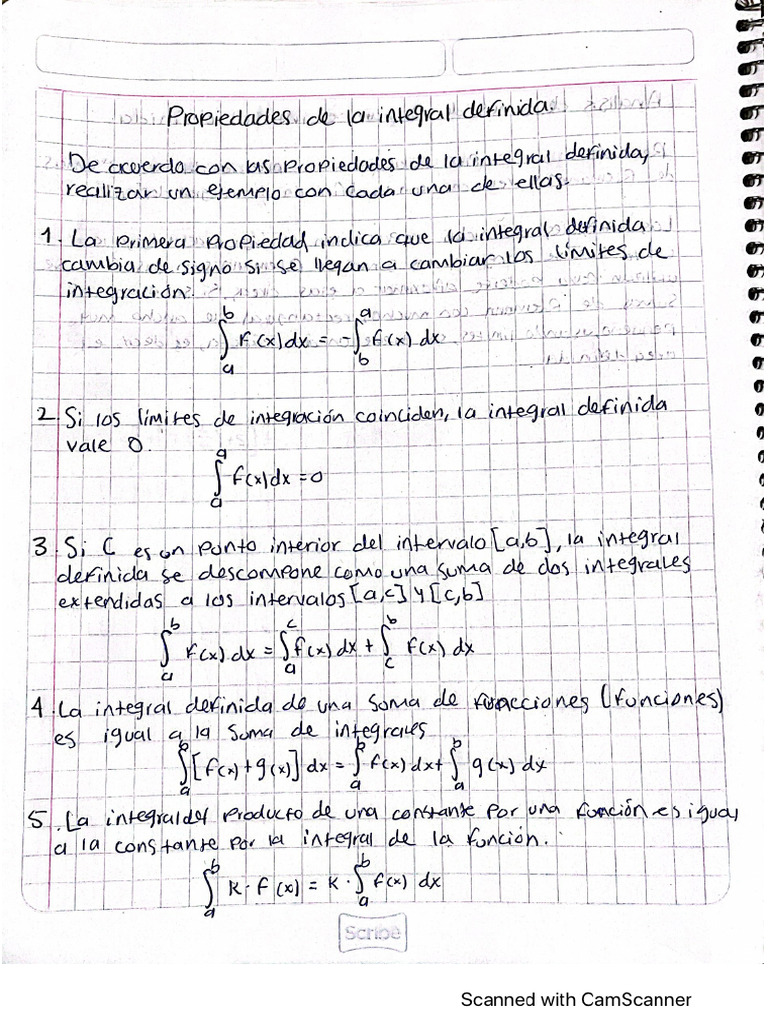 Propiedades de la integral definida.
De acuerdo con las propiedades de la integral definida,
realizar un ejemplo con cada una de ellas.
1. La primera propiedad indica que la integral definida
cambia de signo si se llegan a cambiar los límites de
integración.
∫_a^b f(x)dx = -∫_b^a f(x) dx
2. Si los límites de integración coinciden, la integral definida
vale 0.
∫_a^a f(x)dx = 0
3. Si C es un punto interior del intervalo [a,b], la integral
definida se descompone como una suma de dos integrales
extendidas a los intervalos [a,c] y [c,b]
∫_a^b f(x) dx = ∫_a^c f(x) dx + ∫_c^b f(x) dx
4. La integral definida de una suma de funcciones (funciones)
es igual a la suma de integrales
∫_a^b [f(x)+g(x)] dx = ∫_a^b f(x) dx + ∫_a^b g(x) dx
5. La integral del producto de una constante por una función es igual
a la constante por la integral de la función.
∫_a^b K · f(x) = K · ∫_a^b f(x) dx
Scribe
Scanned with CamScanner